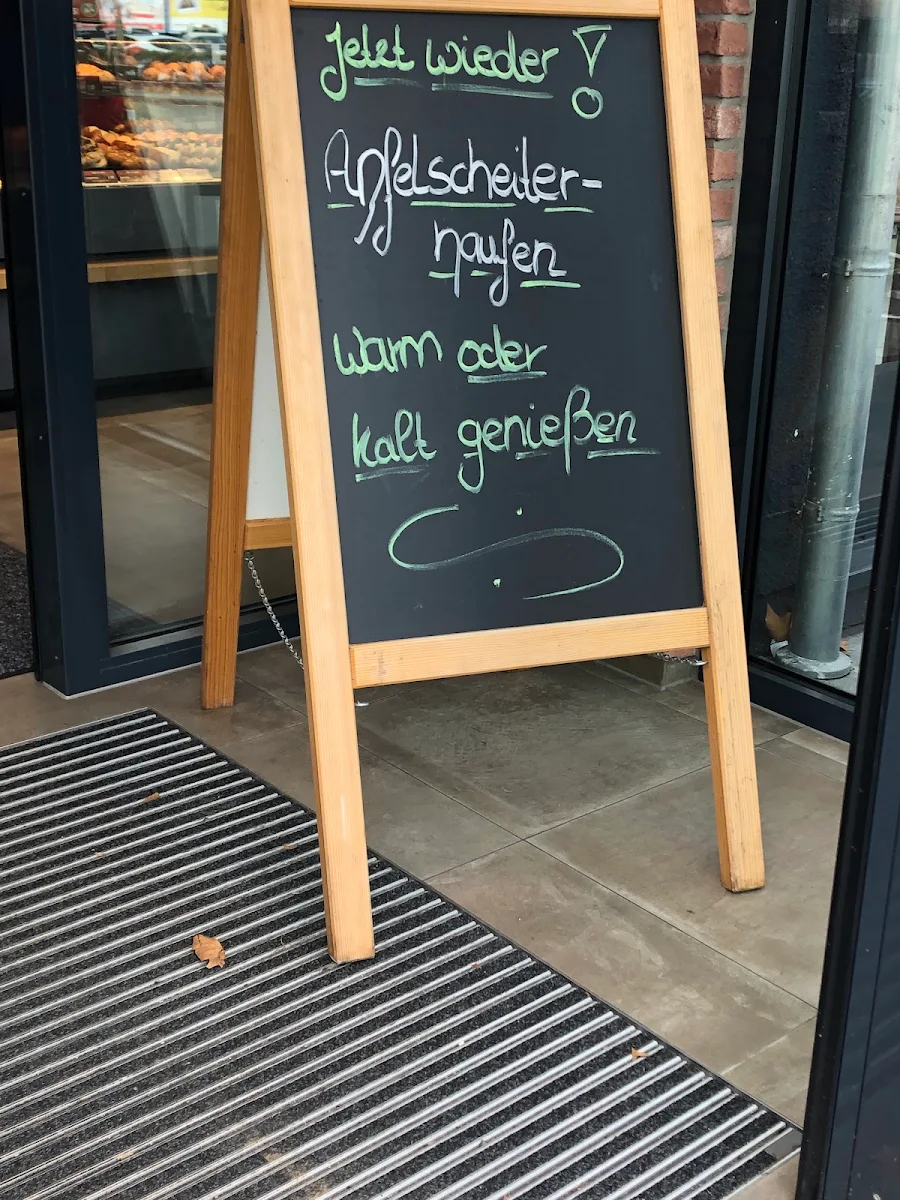 Jetzt wieder!
Apfelscheiter-
haufen
warm oder
kalt genießen